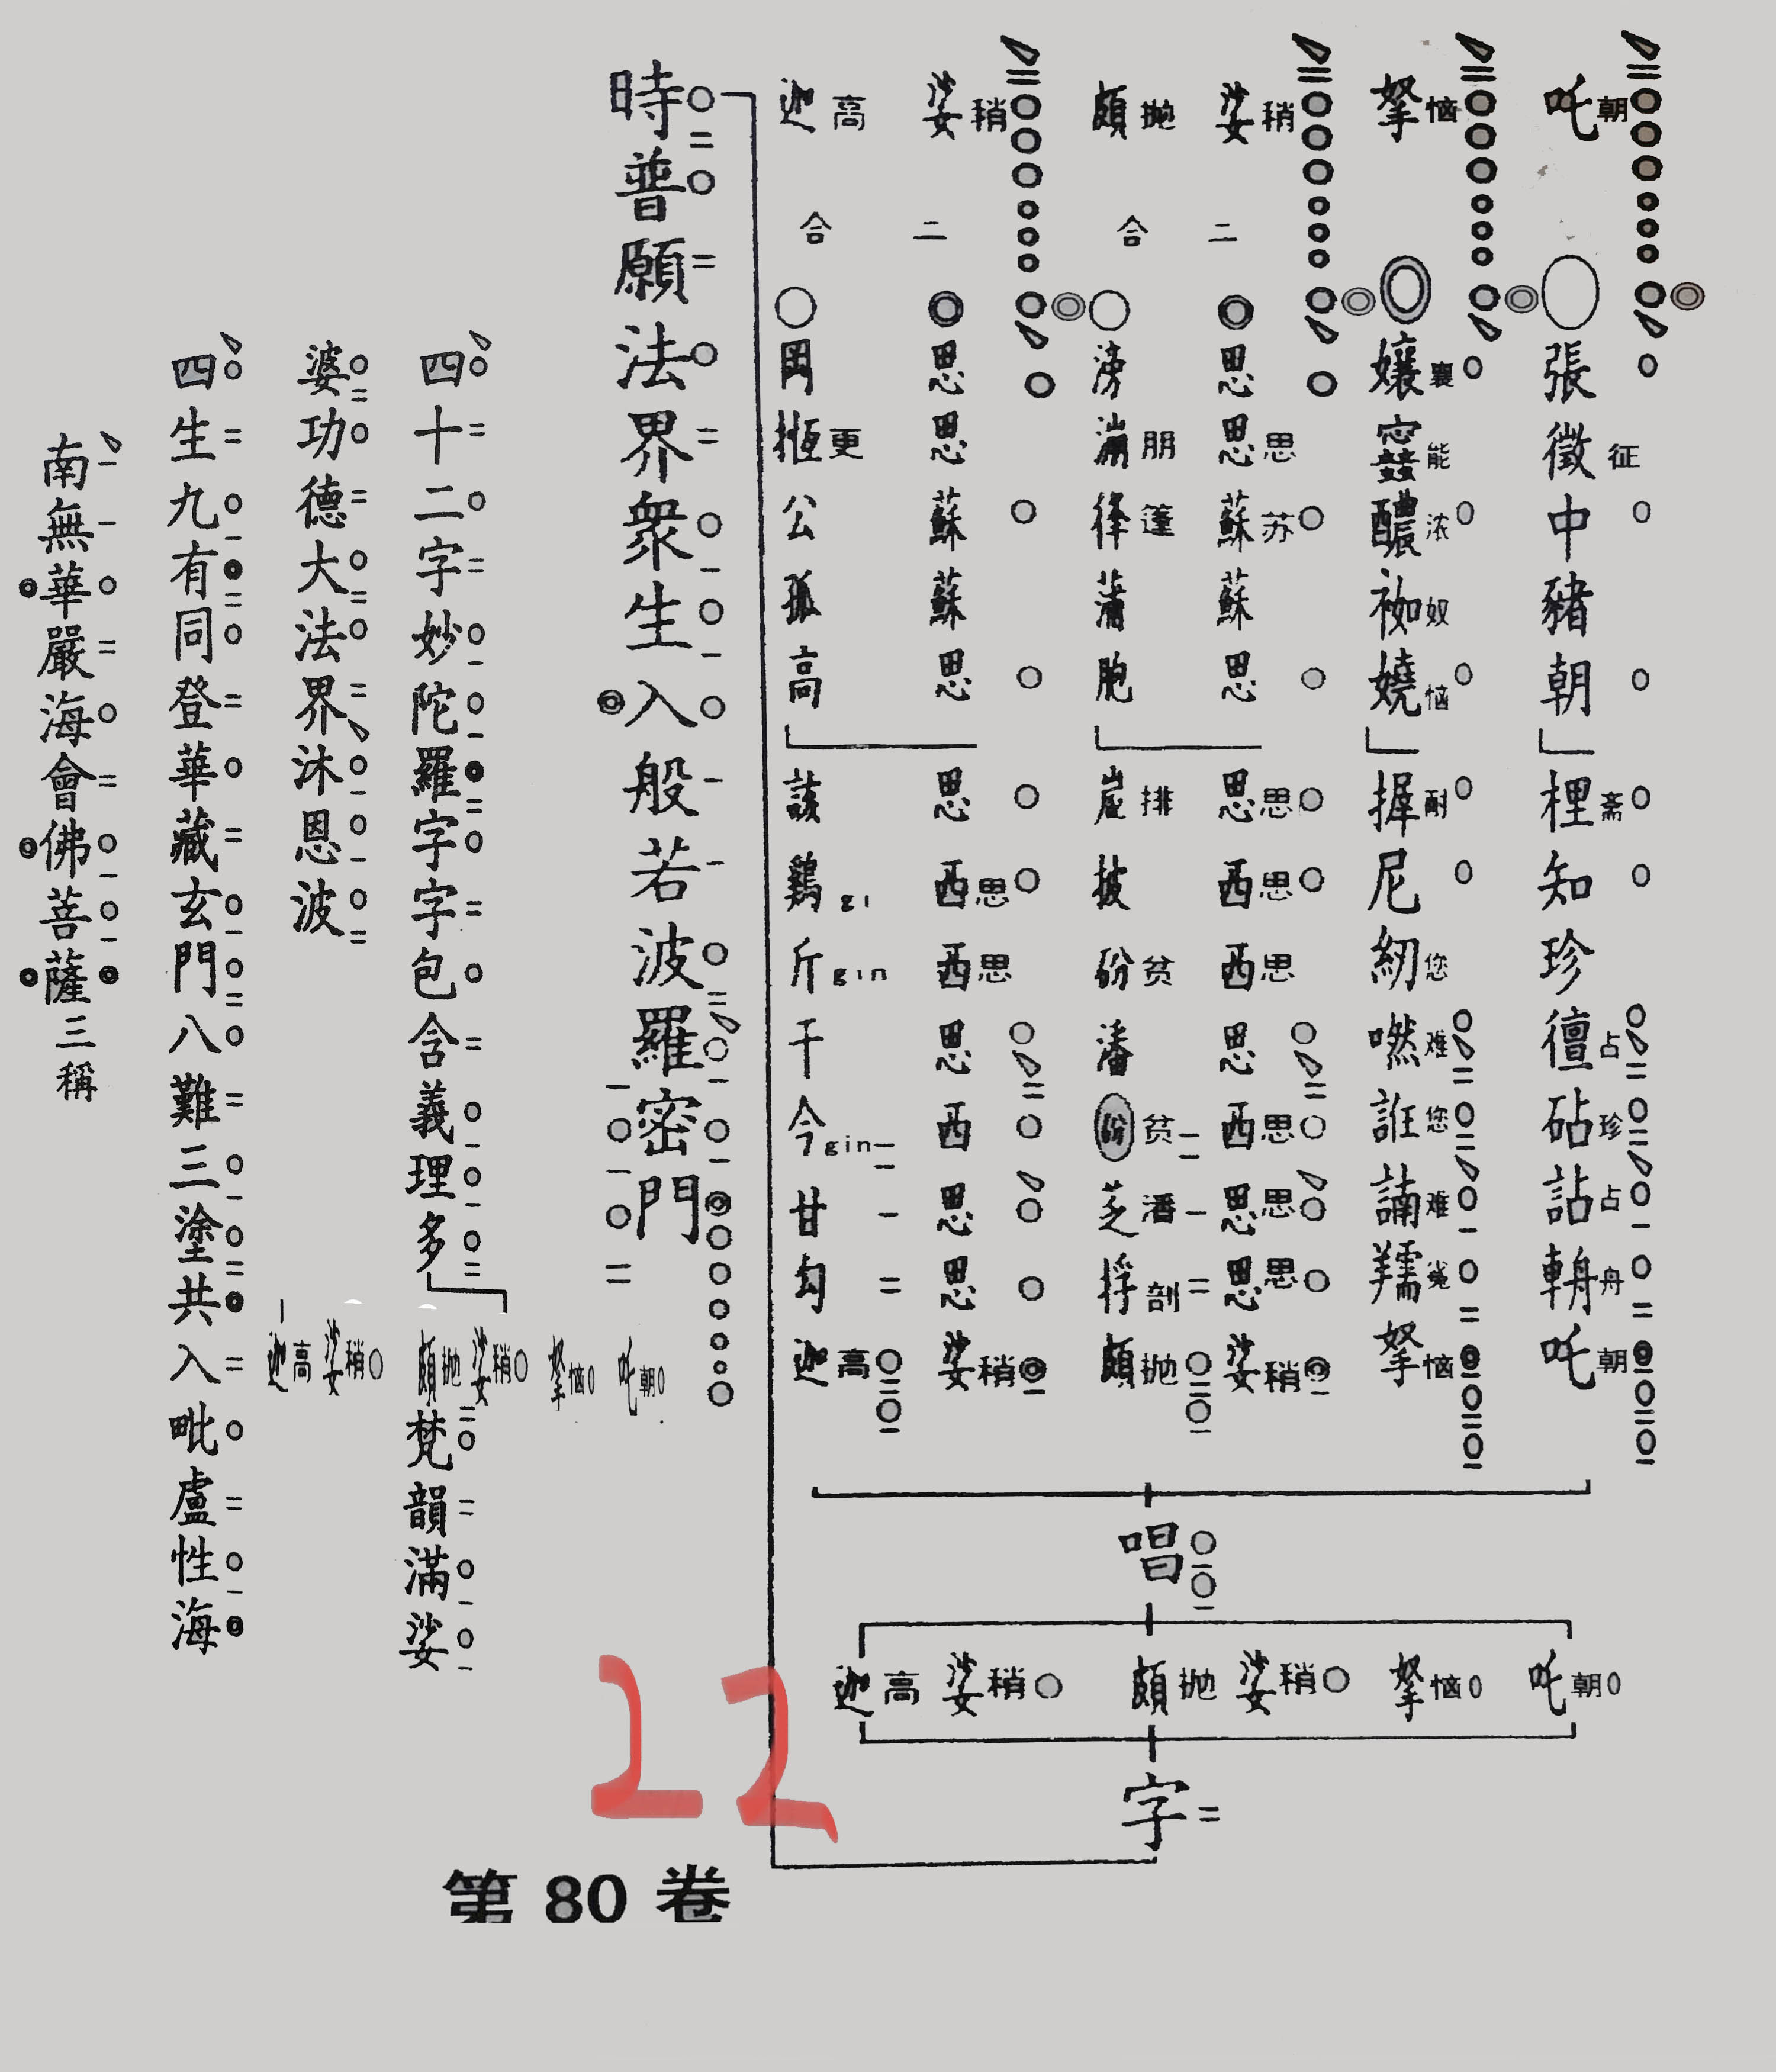 吒朝
張徵征中豬朝
檉斋知珍
邅占砧珍詀占輈舟吒朝
拏恼
孃襄䆨能醲浓袽奴嬈恼
搱耐尼紉您
嘫难誑您諵难羺羗拏恼
娑稍二
思思思蘇苏蘇思
思思西思西思
思西思思思思思娑稍
頗抛合
滂漰朋㣯篷蒲胞
崑排披砏贫
潘砏贫芝潘抙剖頗抛
娑稍二
思思蘇蘇思
思西思西思
思西思思娑稍
迦高合
岡搄更公孤高
該鷄gi斤gin
干今gin甘勾迦高
唱
吒朝 拏恼 娑稍頗抛 娑稍迦高
字
時普願法界衆生入般若波羅密門
四十二字妙陀羅字字包含義理多
吒朝 拏恼 娑稍頗抛 娑稍迦高
梵韻滿娑
婆功德大法界沐恩波
四生九有同登華藏玄門八難三塗共入毗盧性海
南無華嚴海會佛菩薩三稱
22
第 80 卷